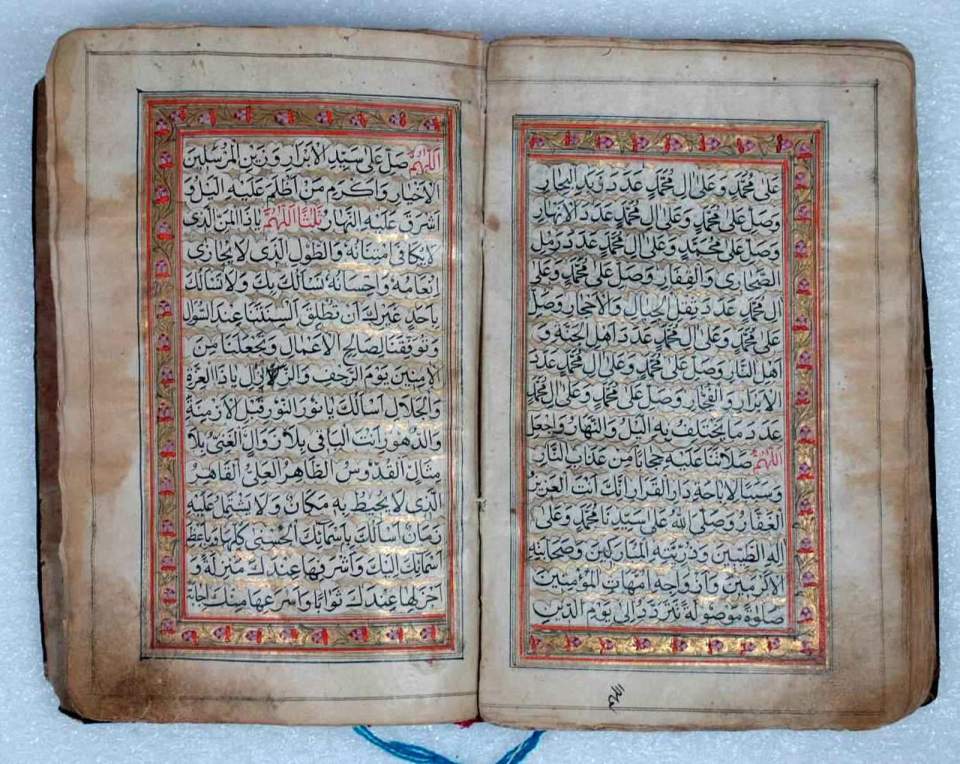 على محمد وعلى ال محمد عدد زبد البحار
وصل على محمد وعلى ال محمد عدد الانهار
وصل على محمد وعلى ال محمد عدد رمل
الصحارى والقفار وصل على محمد وعلى
ال محمد عدد ثقل الجبال والاحجار وصل
على محمد وعلى ال محمد عدد اهل الجنة و
اهل النار وصل على محمد وعلى ال محمد عدد
الابرار والفجار وصل على محمد وعلى ال محمد
عدد ما يختلف به اليل والنهار واجعل
اللهم صلاتنا عليه حجابا من عذاب النار
وسببا لاباحة دار القرار انك انت العزيز
الغفار وصلى الله على سيدنا محمد وعلى
اله الطيبين وذريته المباركين وصحابته
الاكرمين وازواجه امهات المؤمنين
صلوة موصولة تتردد الى يوم الدين
اللهم صل على سيد الابرار وزين المرسلين
الاخيار واكرم من اظلم عليه اليل و
اشرق عليه النهار ثلثا اللهم ياذا المن الذى
لا يكافى امتنانه والطول الذى لا يجازى
انعامه واحسانه نسالك بك ولا نسالك
باحد غيرك ان تطلق السنتنا عند السؤال
وتوفقنا لصالح الاعمال وتجعلنا من
الامنين يوم الرجف والزلازل ياذا العزة
والجلال اسالك يا نور النور قبل الازمنة
والدهور انت الباقى بلا زوال الغنى بلا
مثال القدوس الطاهر العلى القاهر
الذى لا يحيط به مكان ولا يشتمل عليه
زمان اسالك باسمائك الحسنى كلها وباعظم
اسمائك اليك واشرفها عندك منزلة و
اجزلها عندك ثوابا واسرعها منك اجابة